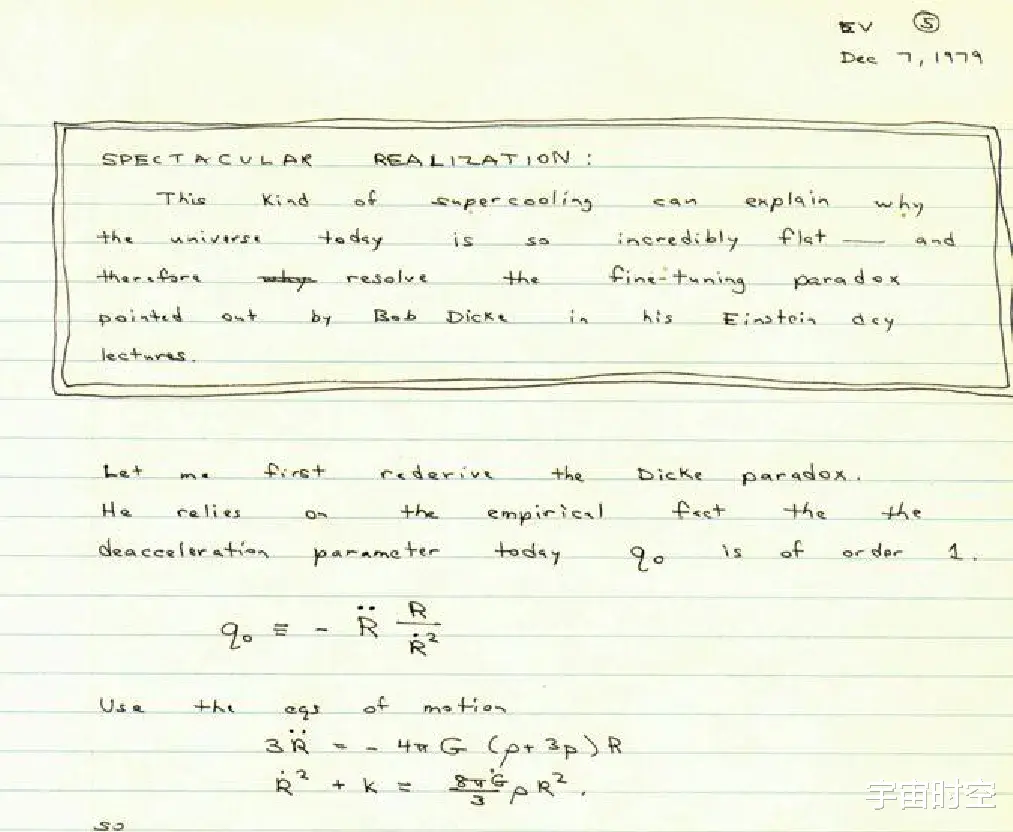 EV ⑤
Dec 7, 1979
SPECTACULAR REALIZATION:
This kind of supercooling can explain why
the universe today is so incredibly flat — and
therefore resolve the fine-tuning paradox
pointed out by Bob Dicke in his Einstein day
lectures.
Let me first rederive the Dicke paradox.
He relies on the empirical fact the the
deacceleration parameter today q₀ is of order 1.
q₀ ≡ - R̈ R/Ṙ²
Use the eqs of motion
3R̈ = - 4π G (ρ + 3p) R
Ṙ² + k = 8πG/3 ρ R².
so
宇宙时空